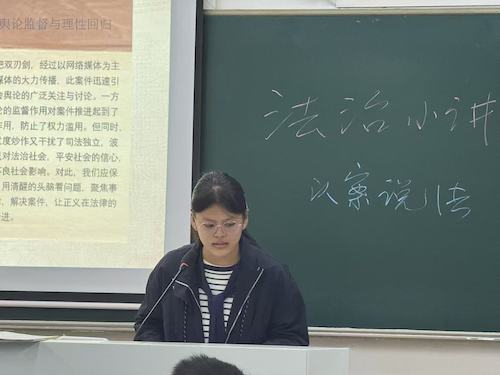 舆论监督与理性回归
把双刃剑，经过以网络媒体为主
媒体的大力传播，此案件迅速引
会舆论的广泛关注与讨论。一方
论的监督作用对案件推进起到了
作用，防止了权力滥用。但同时，
过度炒作又干扰了司法独立，波
众对法治社会，平安社会的信心，
不良社会影响。对此，我们应保
用清醒的头脑看问题，聚焦事
解决案件，让正义在法律的
进。
法治小讲
以案说法